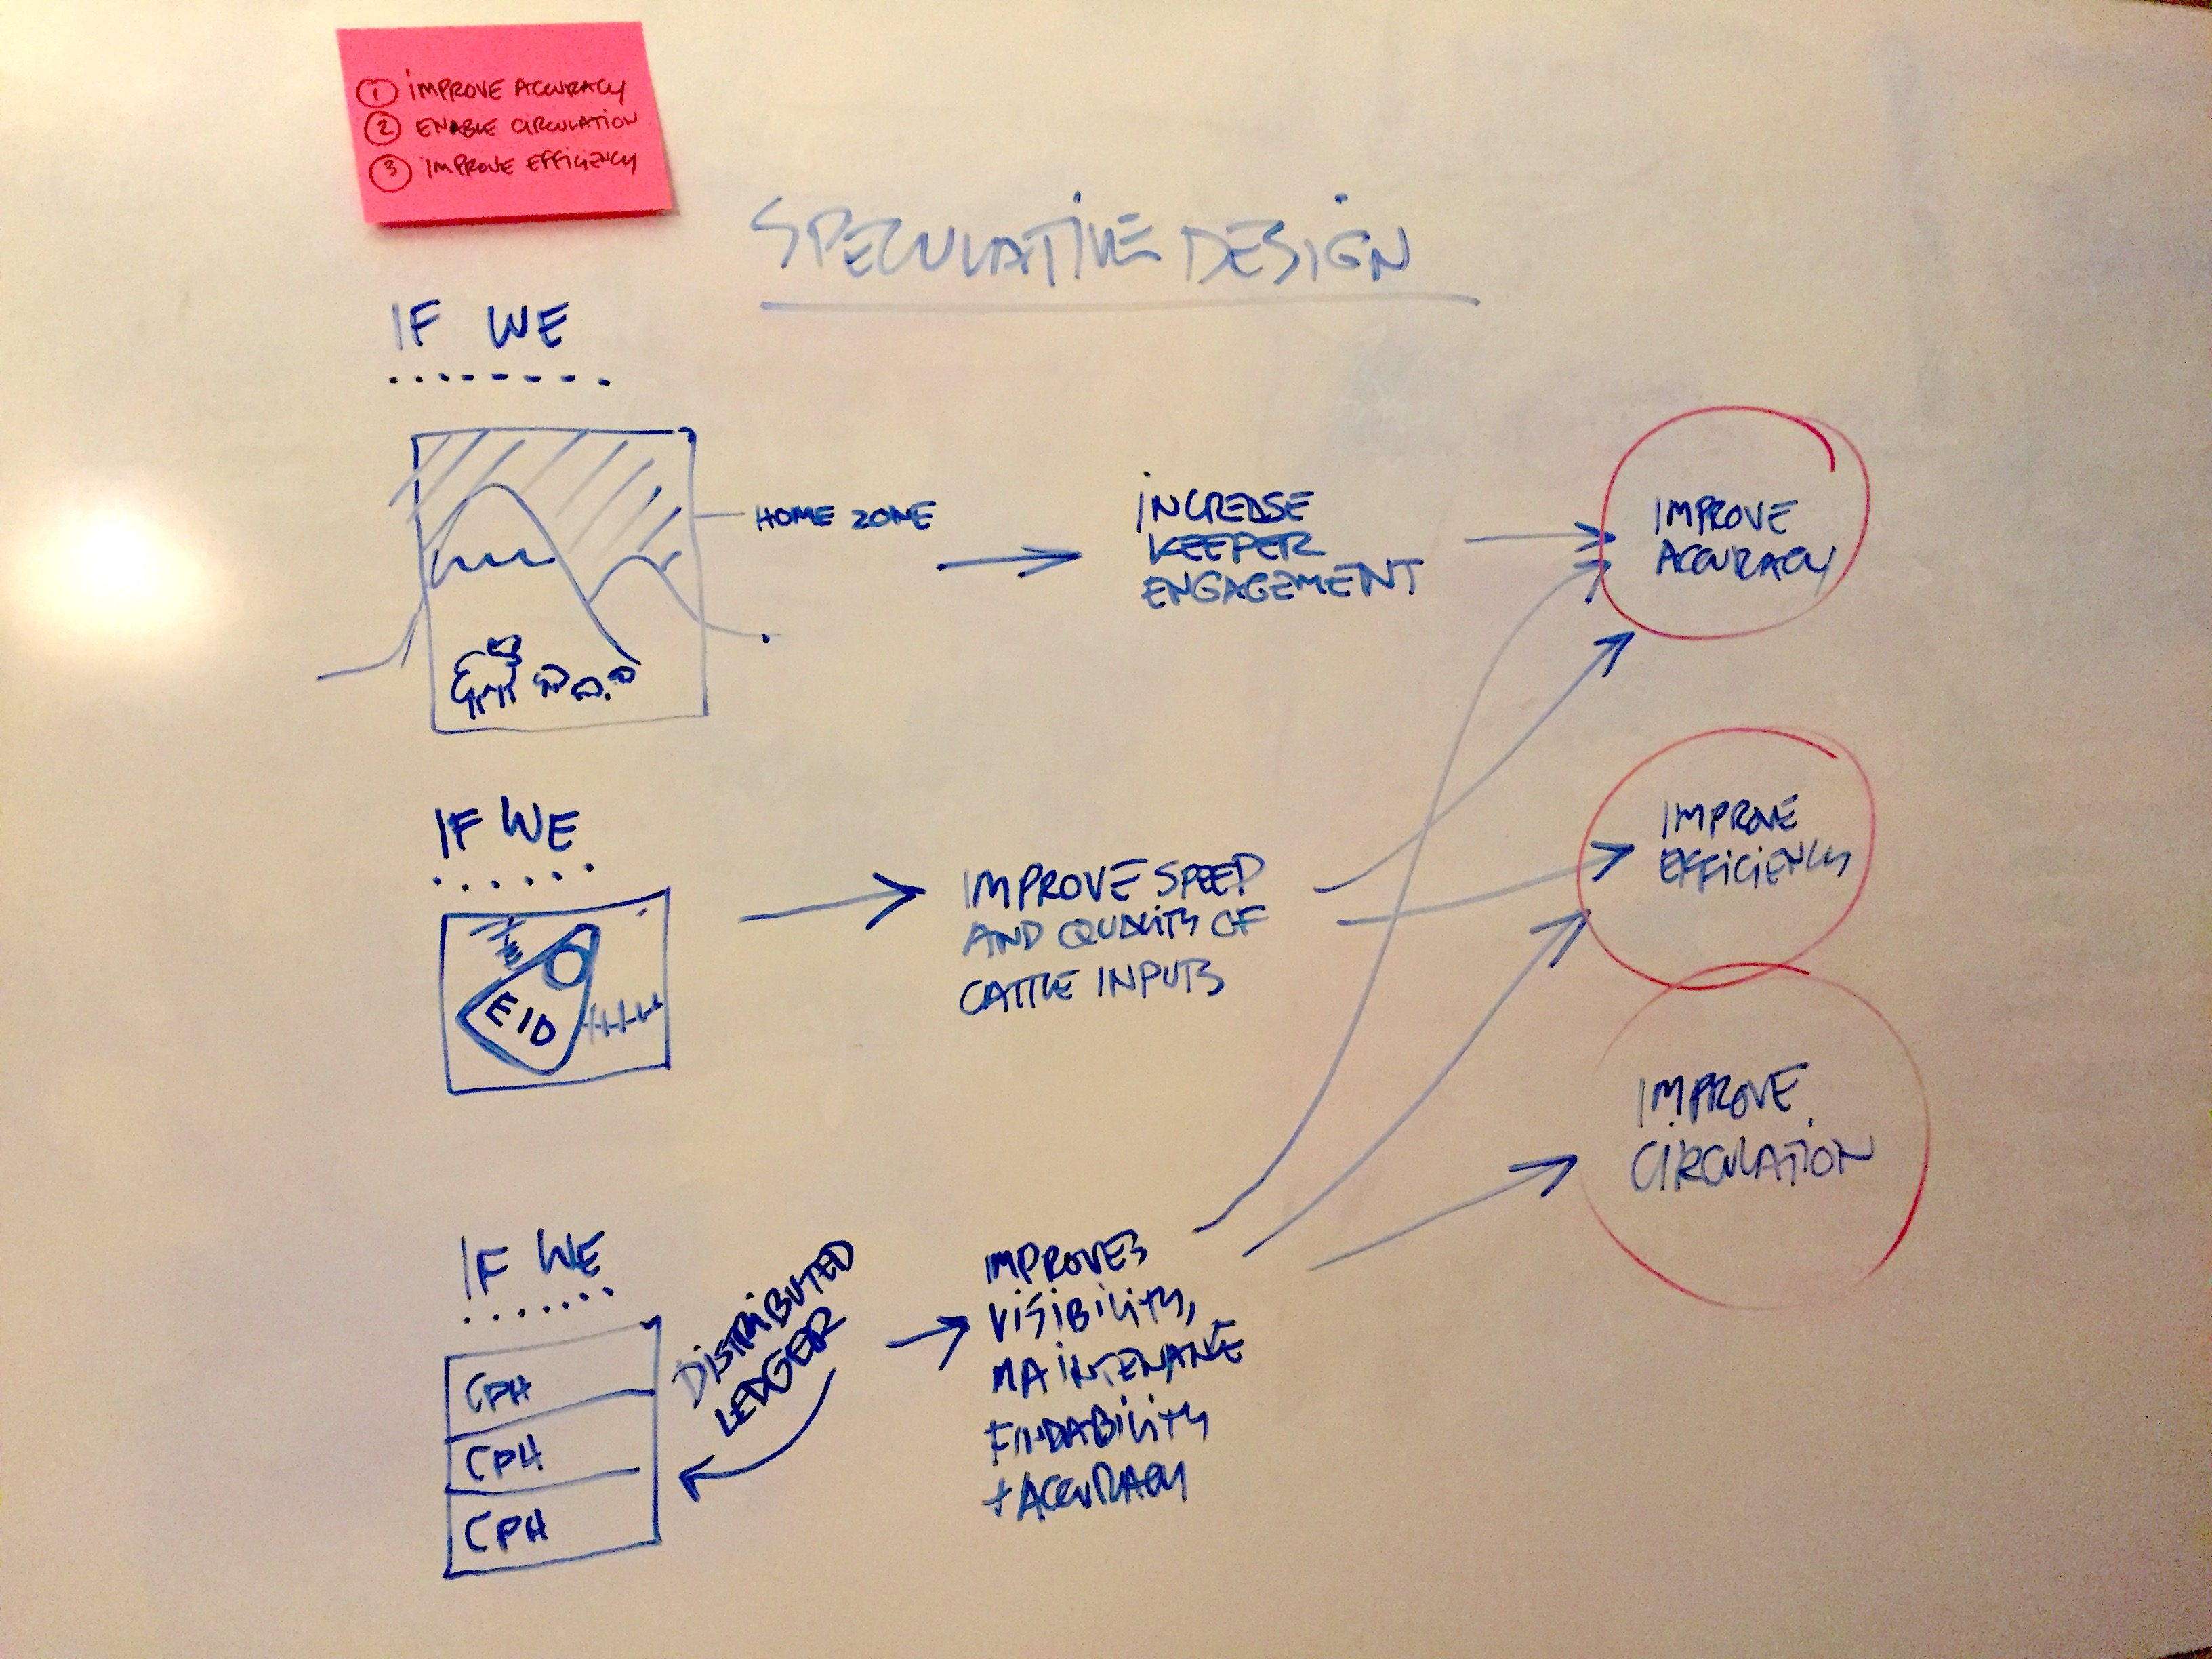 ① IMPROVE ACCURACY
② ENABLE CIRCULATION
③ IMPROVE EFFICIENCY
SPECULATIVE DESIGN
IF WE
HOME ZONE
INCREASE
KEEPER
ENGAGEMENT
IMPROVE
ACCURACY
IF WE
EID
IMPROVE SPEED
AND QUALITY OF
CATTLE INPUTS
IMPROVE
EFFICIENCY
IMPROVE
CIRCULATION
IF WE
CPH
CPH
CPH
DISTRIBUTED
LEDGER
IMPROVES
VISIBILITY,
MAINTENANCE
FINDABILITY
+ ACCURACY